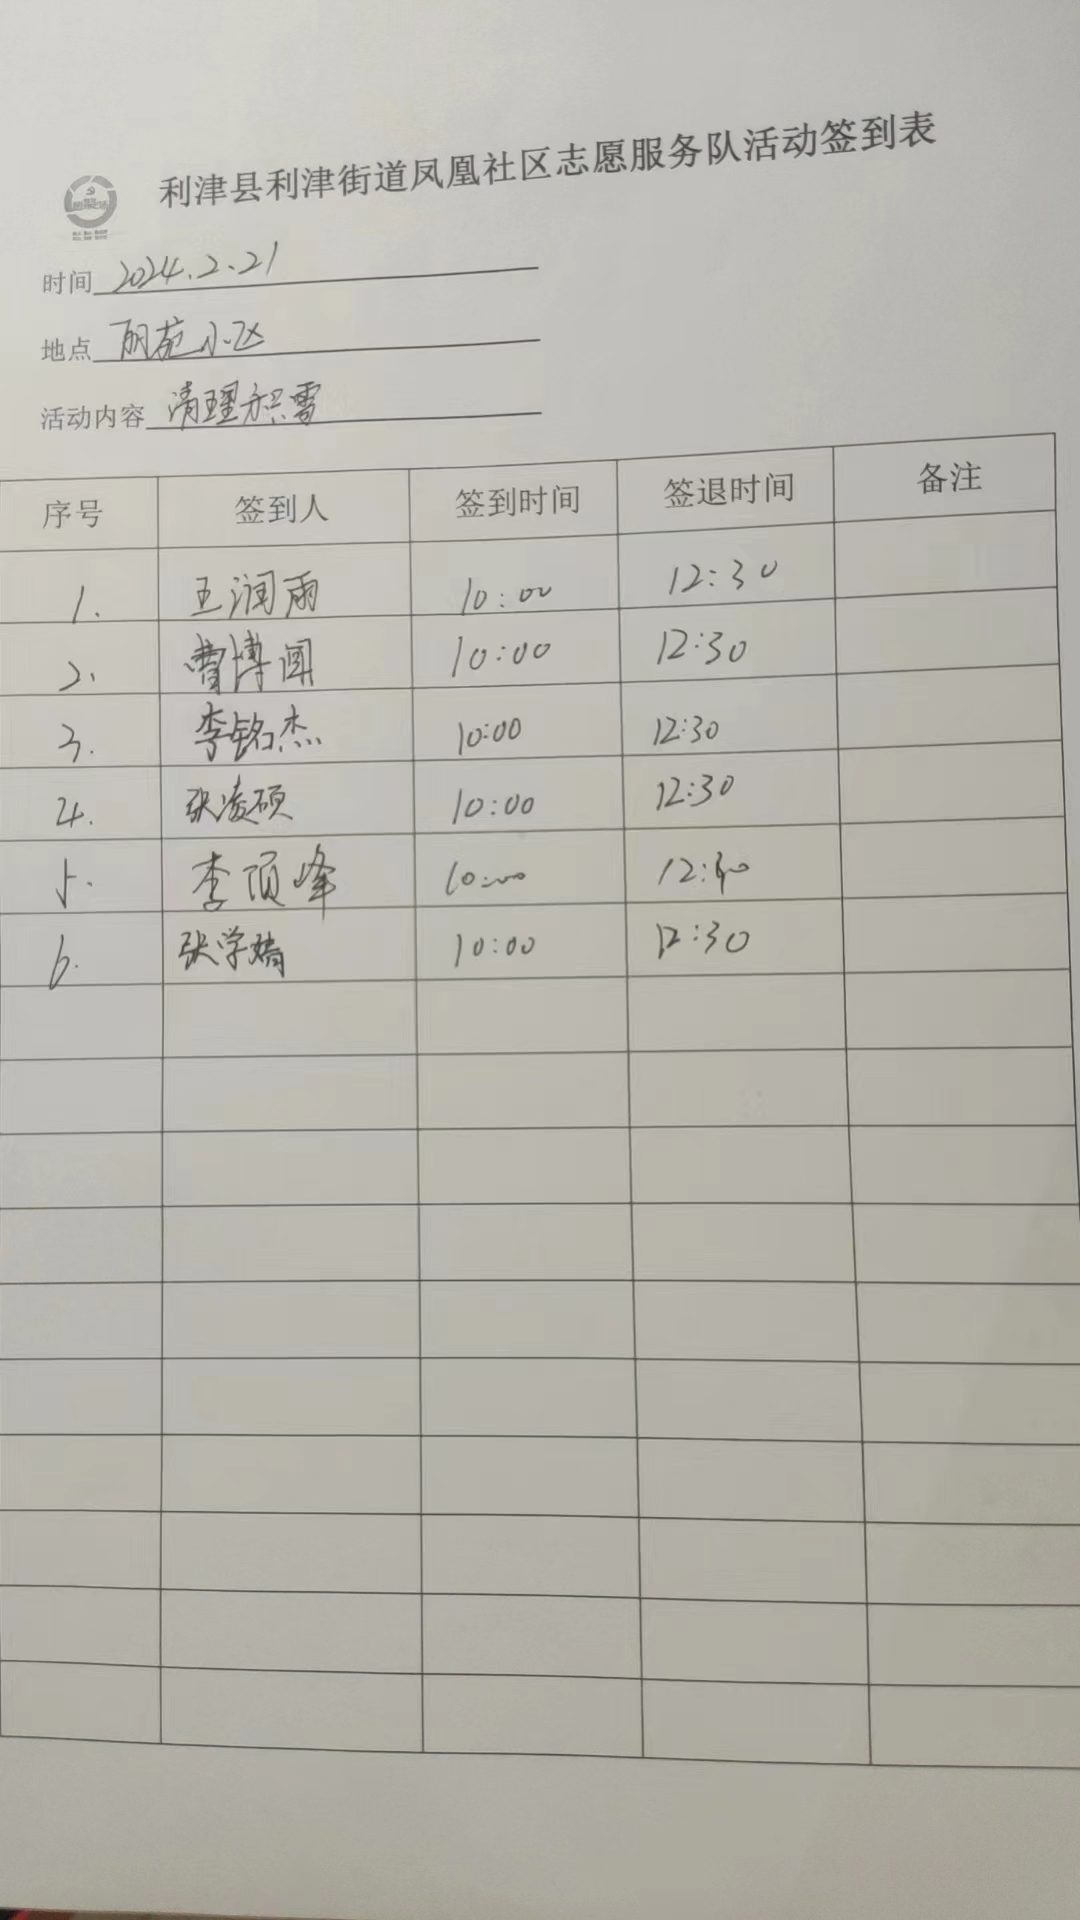 利津县利津街道凤凰社区志愿服务队活动签到表
时间 2024.2.21
地点 丽苑小区
活动内容 清理积雪
序号 签到人 签到时间 签退时间 备注
1. 王润雨 10:00 12:30
2. 曹博闻 10:00 12:30
3. 李铭杰 10:00 12:30
4. 张凌硕 10:00 12:30
5. 李顶峰 10:00 12:30
6. 张学婧 10:00 12:30